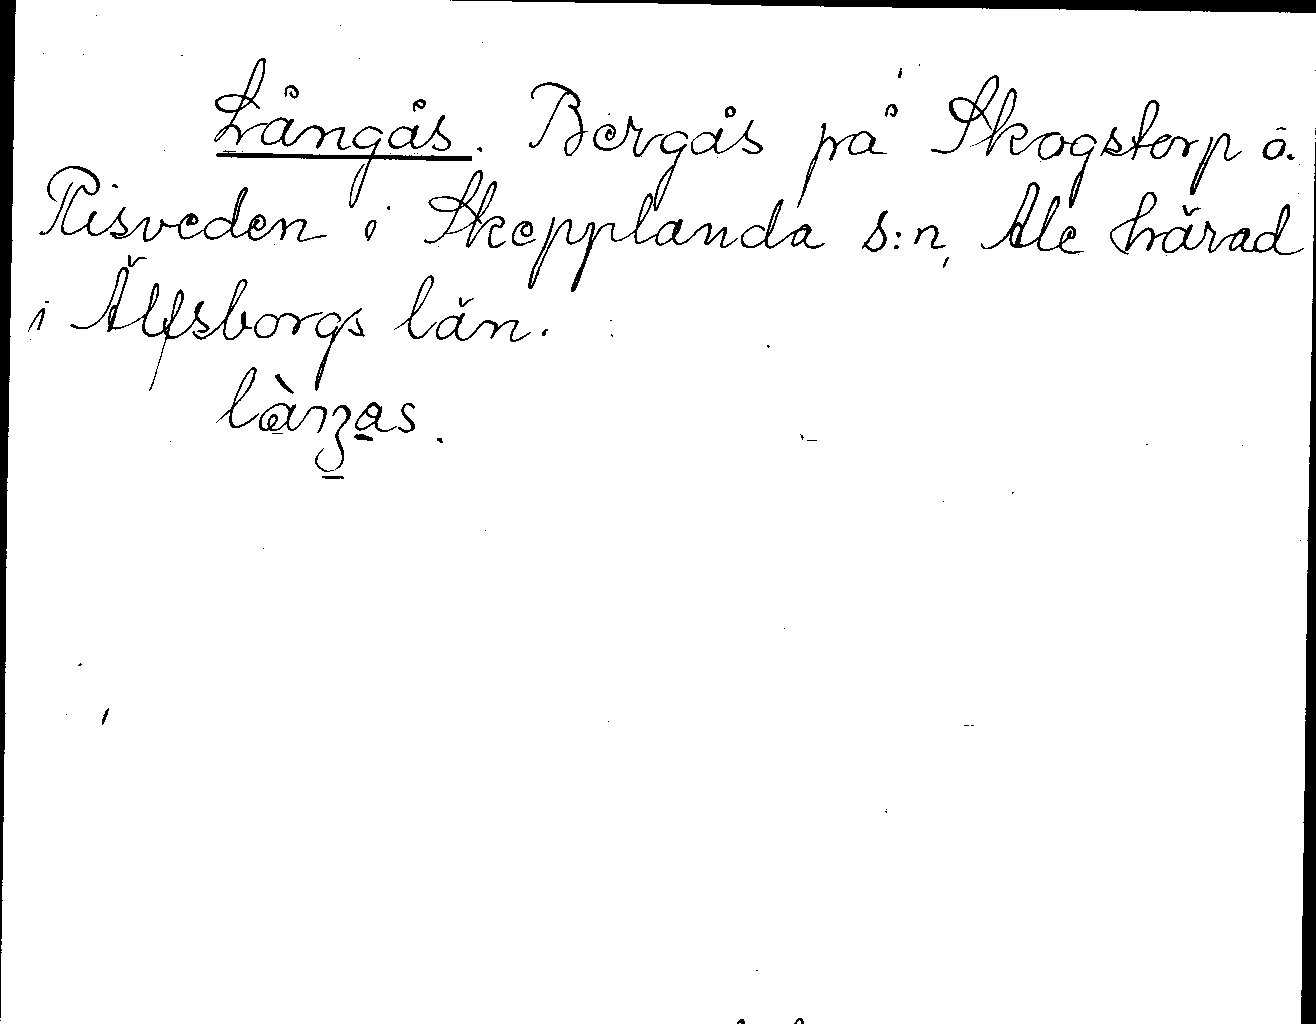 Långås. Bergås på Skogstorp ö.
Risveden i Skepplanda s:n, Ale härad
i Älfsborgs län.